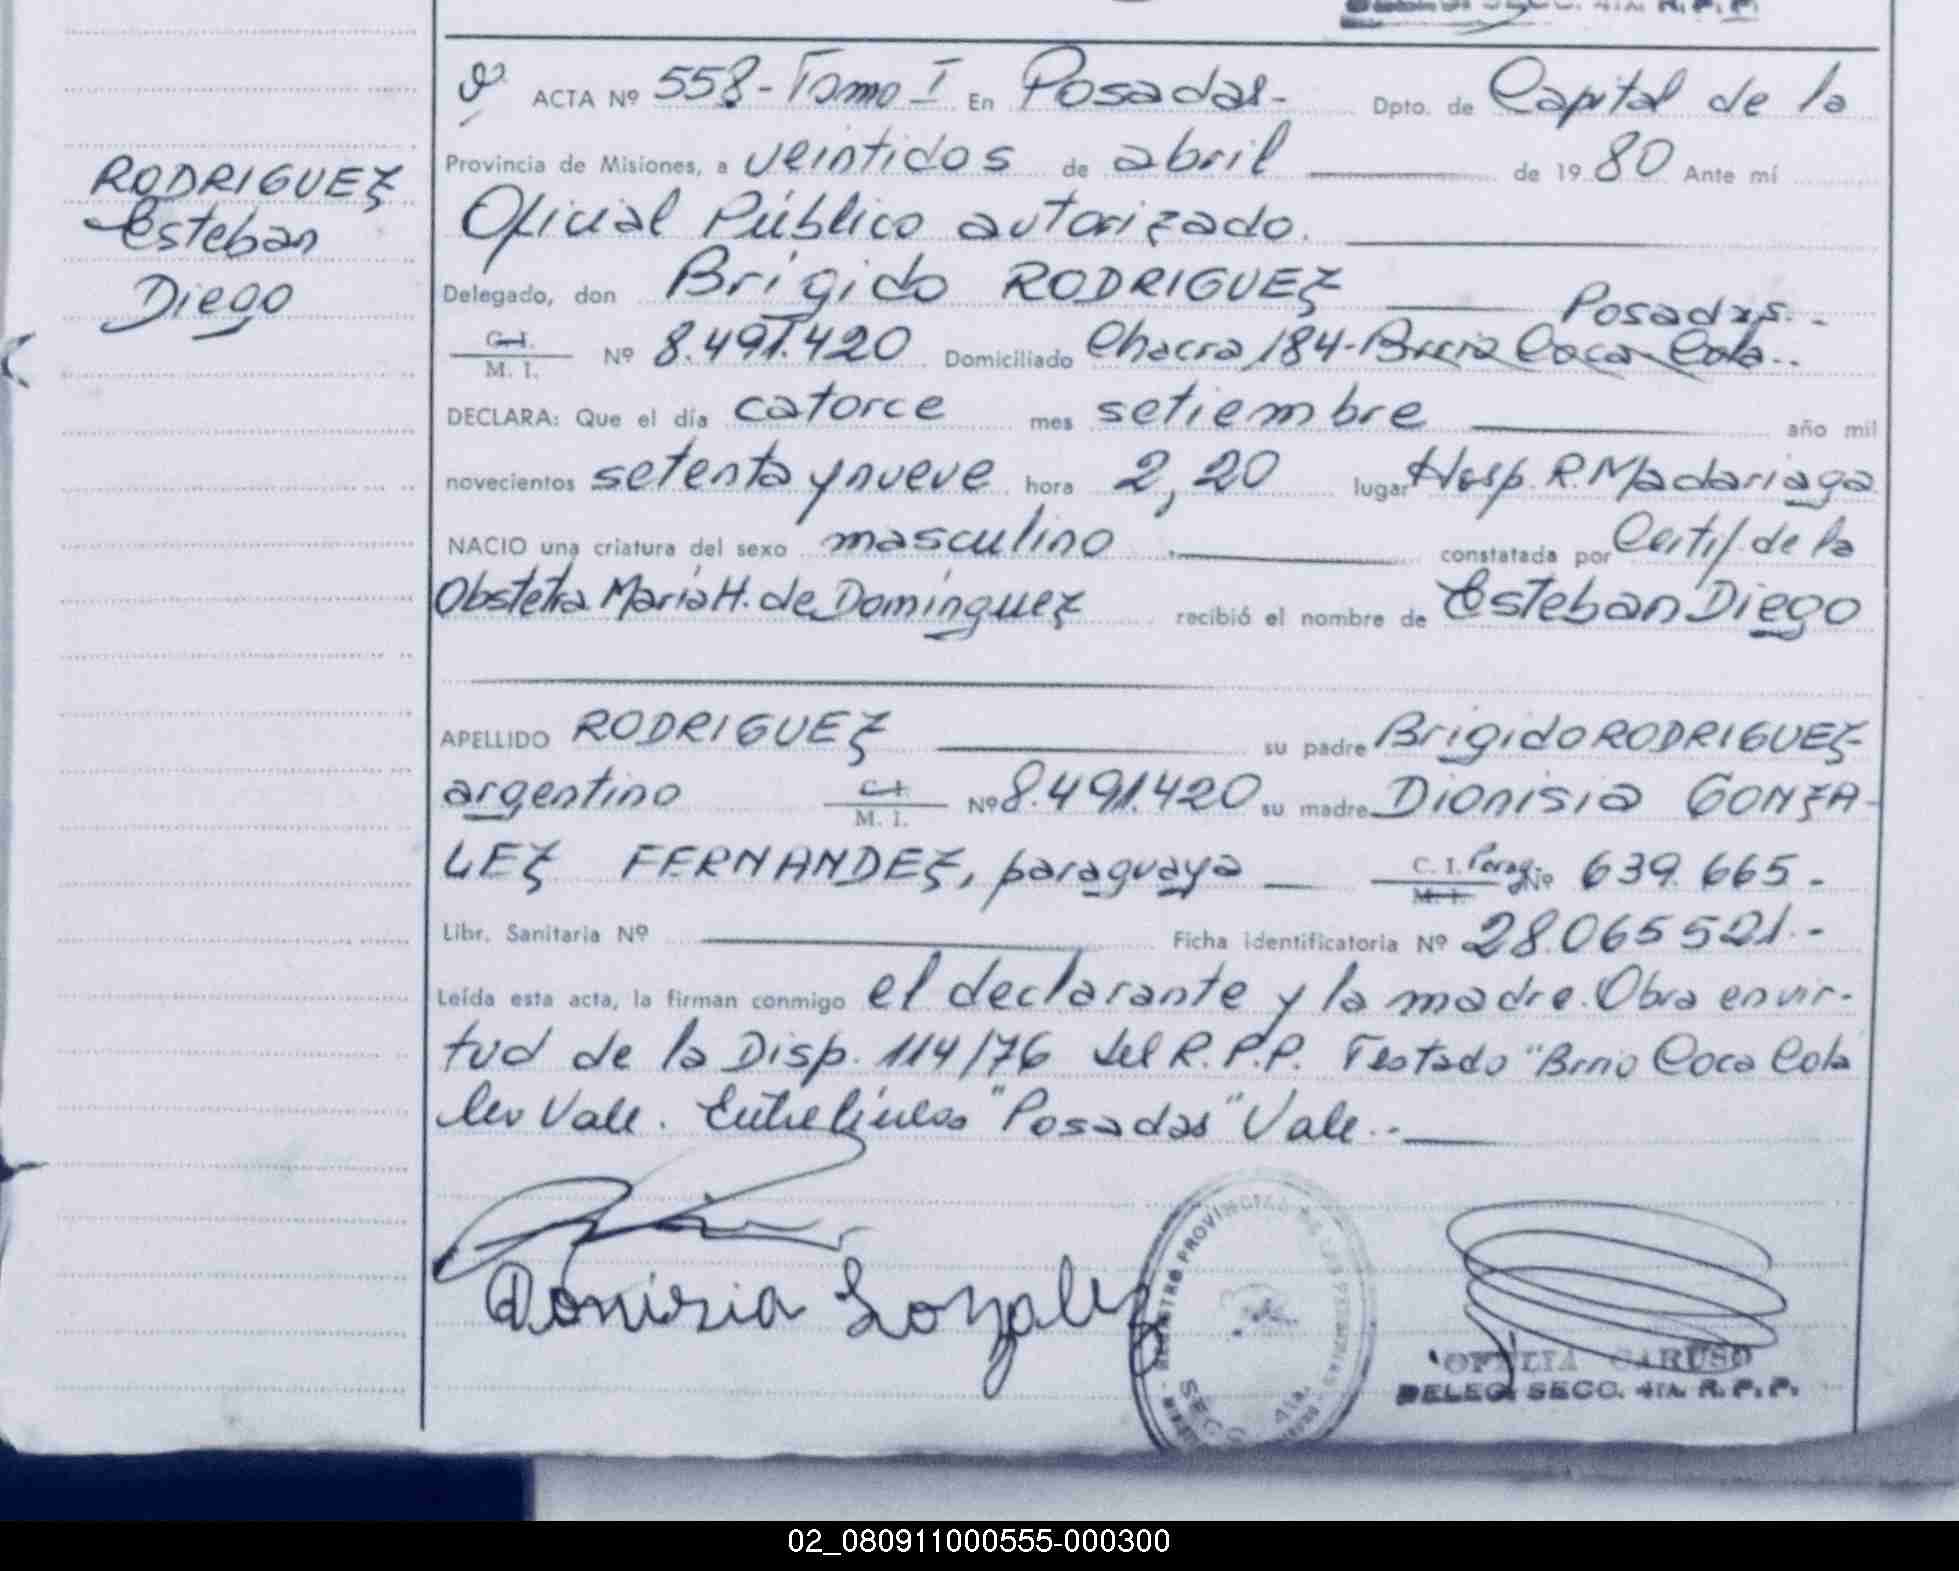 RODRIGUEZ
Esteban
Diego
ACTA Nº 558 - Tomo I En Posadas - Dpto. de Capital de la
Provincia de Misiones, a veintidos de abril de 1980 Ante mí
Oficial Público autorizado.
Delegado, don Brígido RODRIGUEZ
Posadas.-
C. I. M. I. Nº 8.491.420 Domiciliado Chacra 184 - Brrio Coca Cola.-
DECLARA: Que el día catorce mes setiembre año mil
novecientos setenta y nueve hora 2,20 lugar Hosp. R. Madariaga
NACIO una criatura del sexo masculino constatada por Certif. de la
Obstetra María H. de Domínguez recibió el nombre de Esteban Diego
APELLIDO RODRIGUEZ su padre Brígido RODRIGUEZ-
argentino C. I. M. I. Nº 8.491.420 su madre Dionisia GONZA-
LEZ FERNANDEZ, paraguaya C. I. Parag. M. I. Nº 639.665-
Libr. Sanitaria Nº Ficha identificatoria Nº 28.065521.-
Leída esta acta, la firman conmigo el declarante y la madre. Obra en vir-
tud de la Disp. 114/76 del R.P.P. Testado "Brrio Coca Cola
Vale. Entrelíneas "Posadas" Vale.-
Donisia Gozalez
REGISTRO PROVINCIAL DE LAS PERSONAS
SECC 4ta.
OFELIA CARUSO
DELEG. SECC. 4TA. R. P. P.
02_080911000555-000300